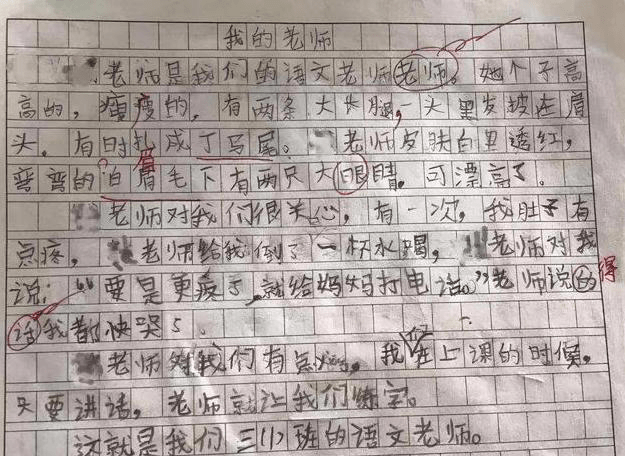 我的老师
老师是我们的语文老师老师。她个子高
高的，瘦瘦的，有两条大长腿，一头黑发披在肩
头，有时扎成了马尾。老师皮肤白里透红，
弯弯的眉毛下有两只大眼睛，可漂亮了。
老师对我们很关心，有一次，我肚子有
点疼，老师给我倒了一杯水喝，老师对我
说：“要是更疼了，就给妈妈打电话。”老师说的得
话我都快哭了。
老师对我们有点，我们在上课的时候，
只要讲话，老师就让我们练字。
这就是我们三(1)班的语文老师。